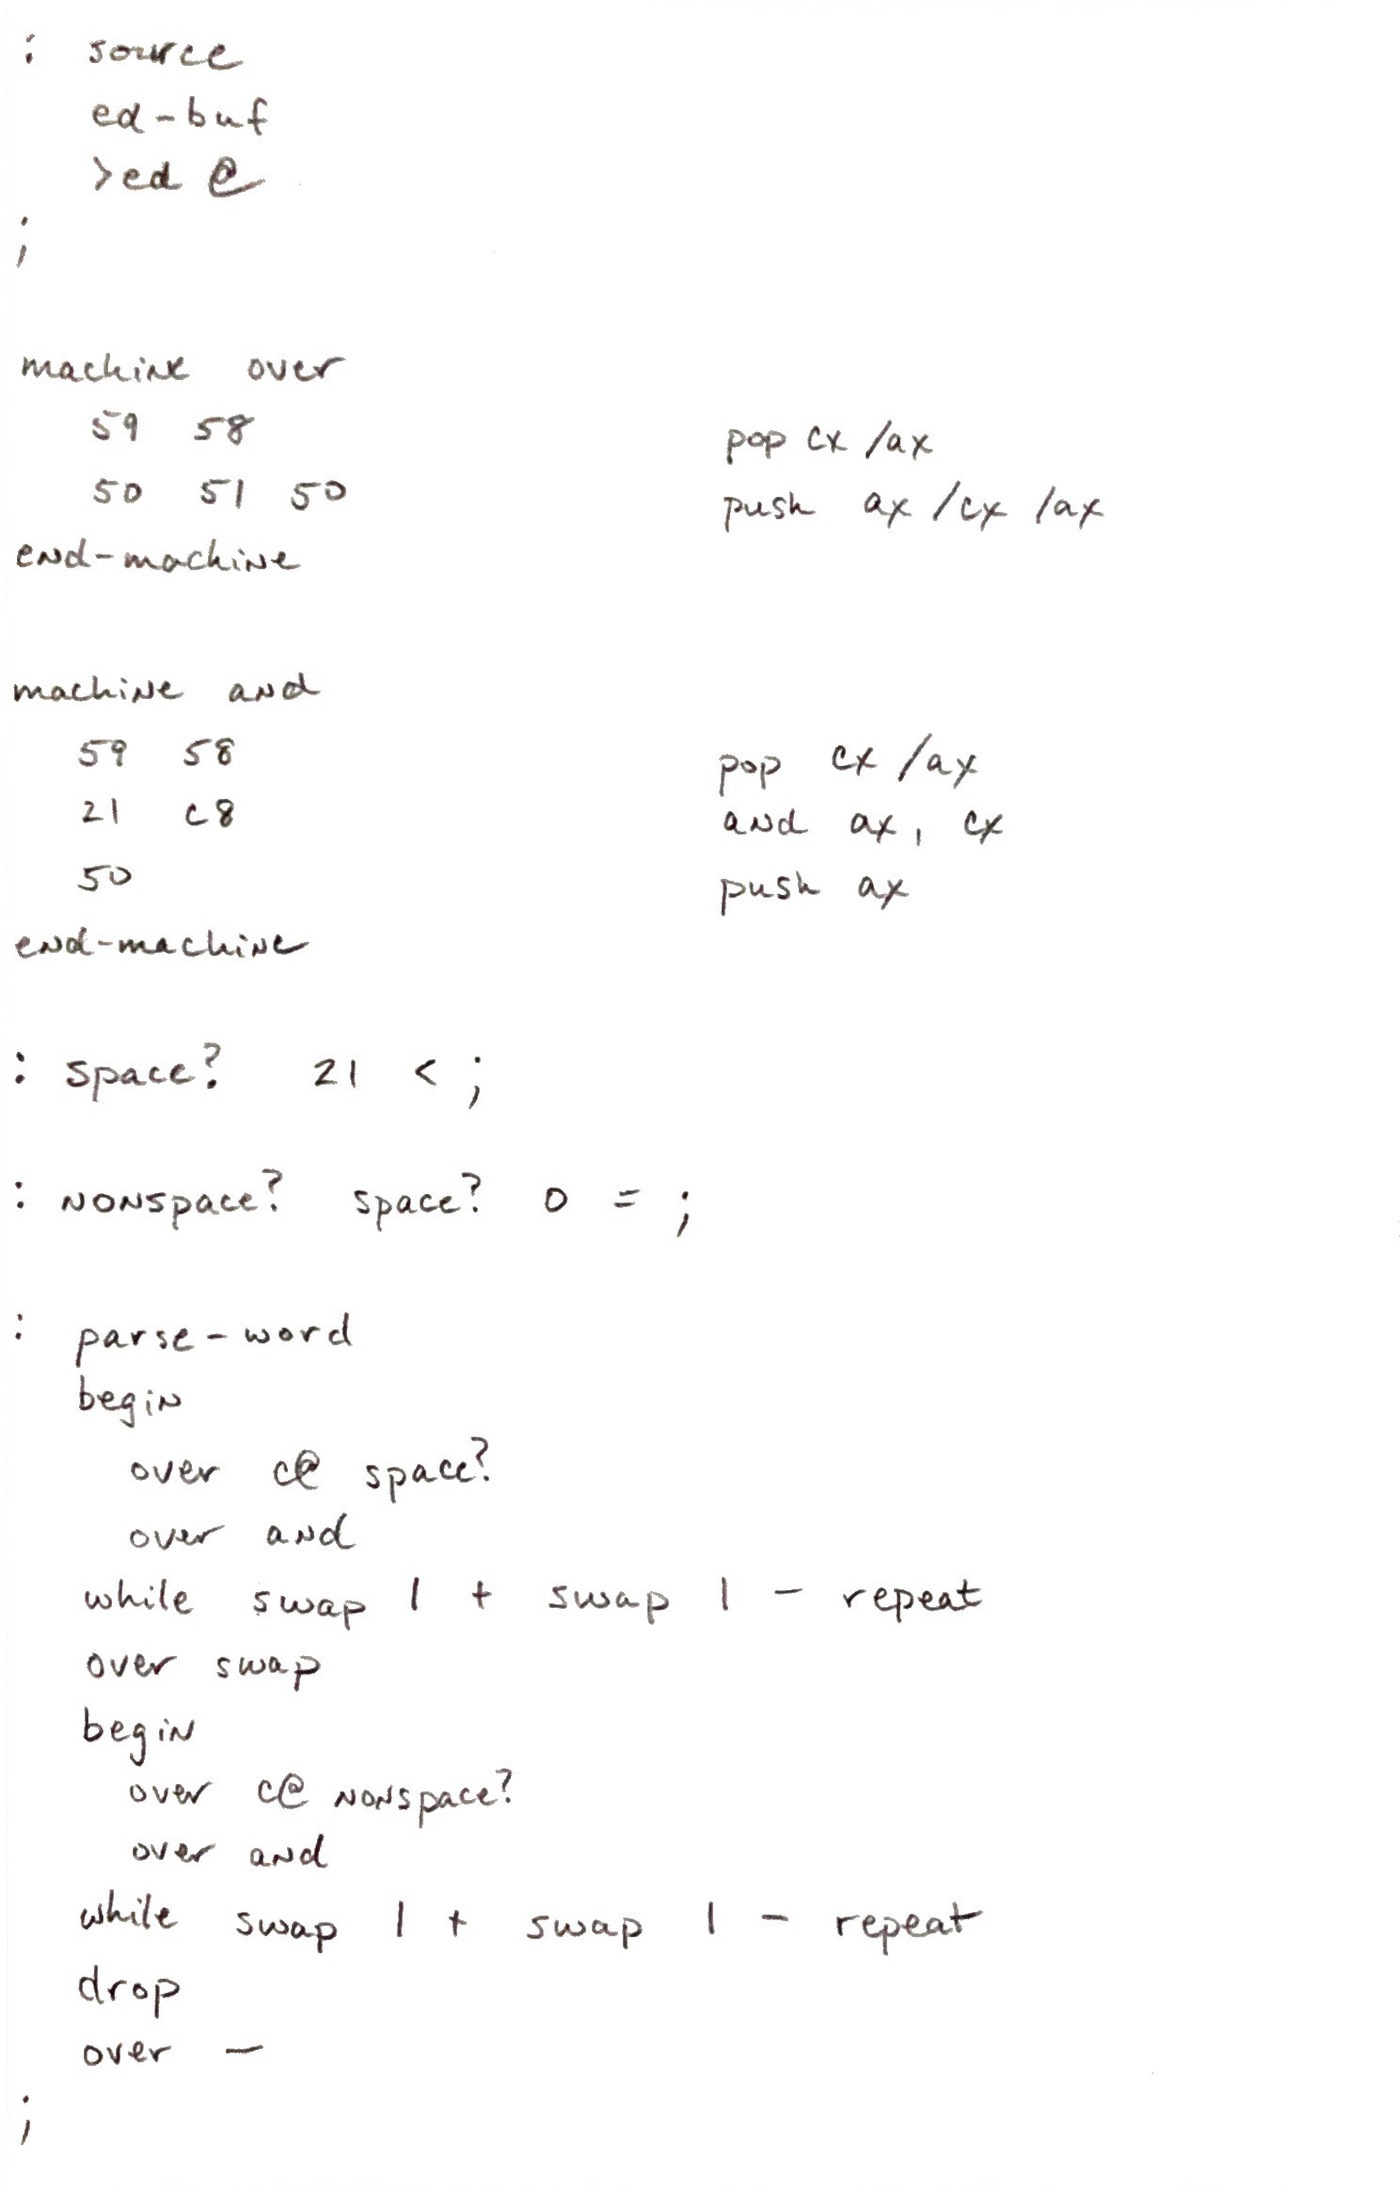 : source
ed-buf
>ed @
;
machine over
59 58 pop cx /ax
50 51 50 push ax /cx /ax
end-machine
machine and
59 58 pop cx /ax
21 c8 and ax, cx
50 push ax
end-machine
: space? 21 < ;
: nonspace? space? 0 = ;
: parse-word
begin
over c@ space?
over and
while swap 1 + swap 1 - repeat
over swap
begin
over c@ nonspace?
over and
while swap 1 + swap 1 - repeat
drop
over -
;